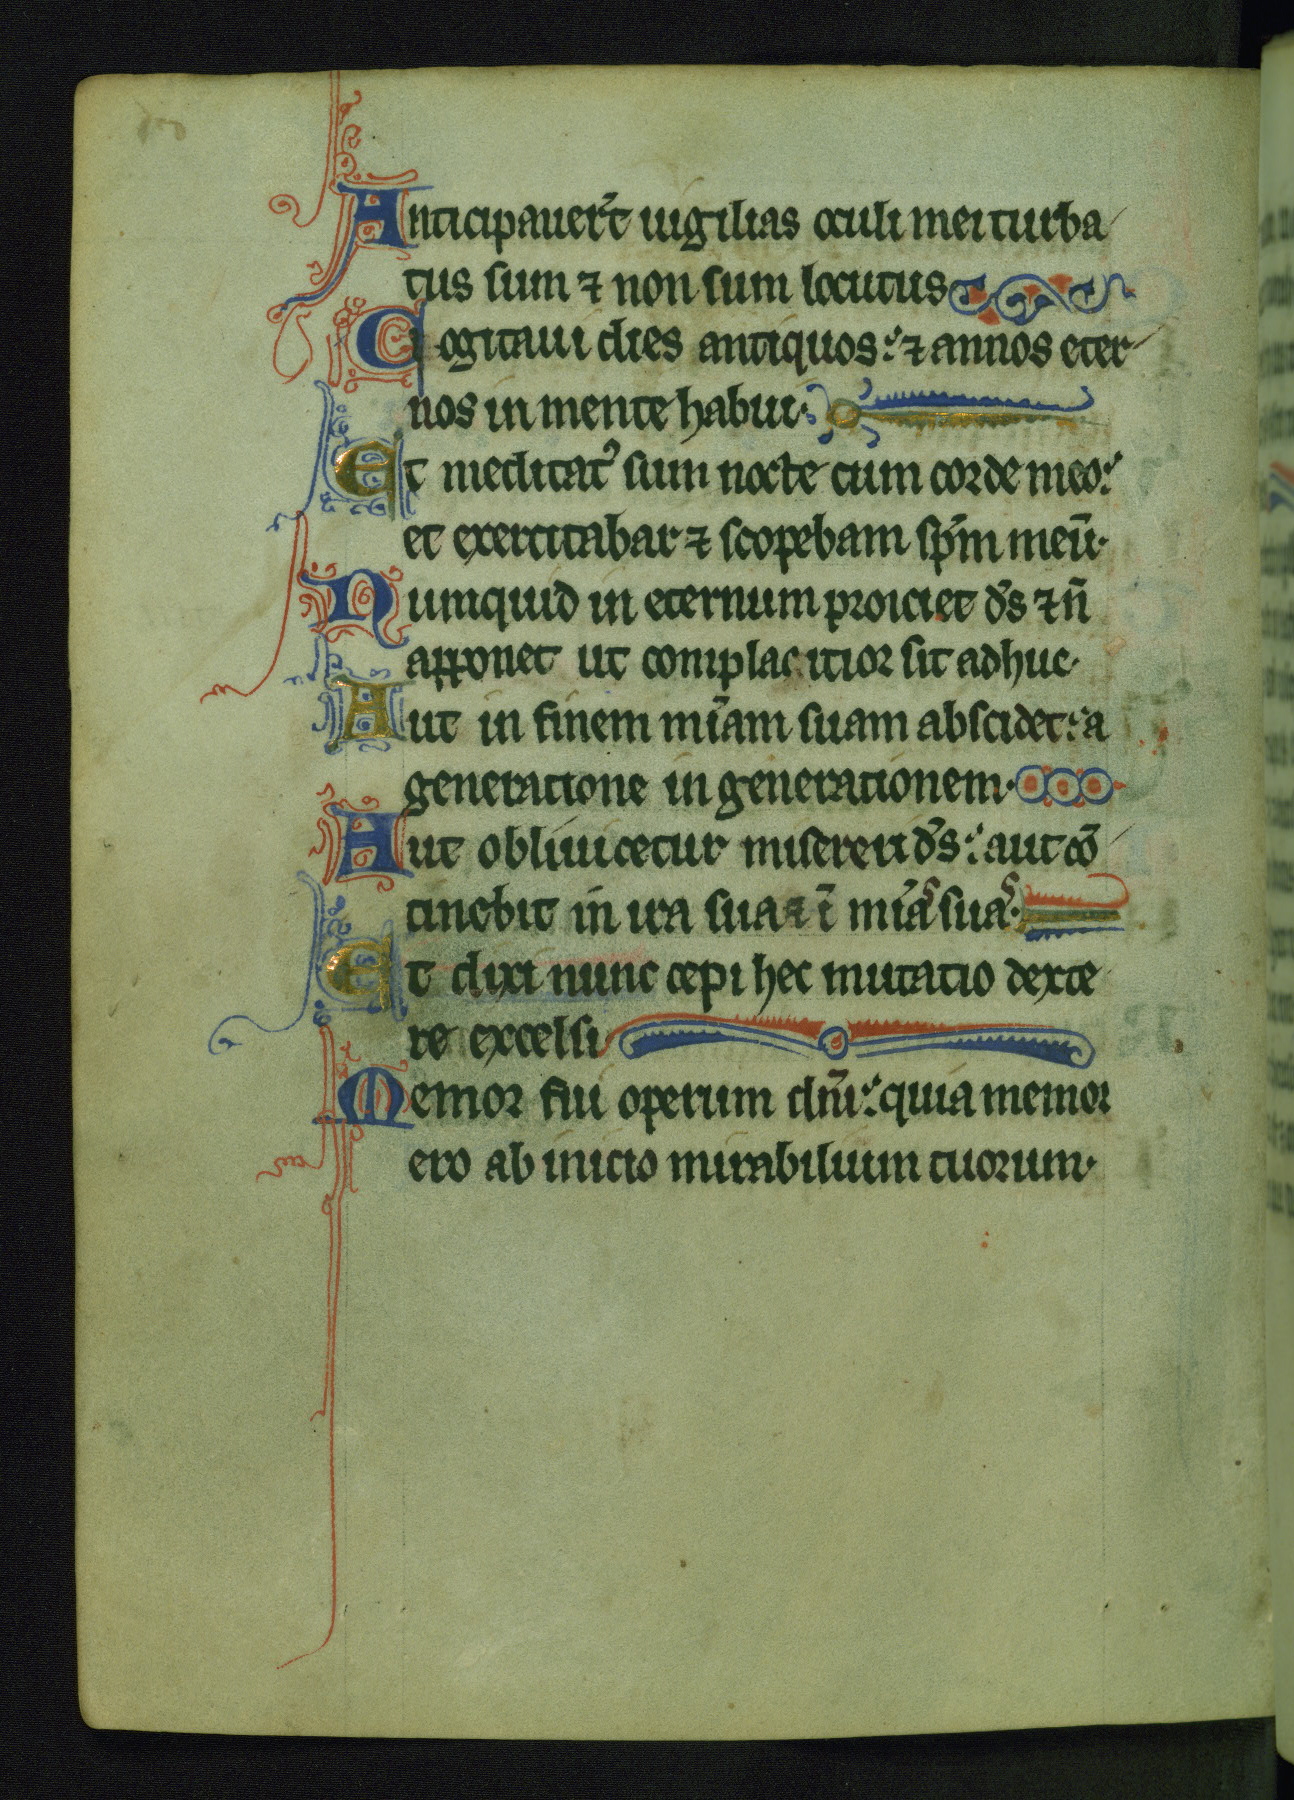 Anticipauer̄t uigilias oculi mei turba
tus sum ⁊ non sum locutus
Cogitaui dies antiquos: ⁊ annos eter
nos in mente habui·
Et meditatꝰ sum nocte cum corde meo:
et exercitabar ⁊ scopebam sp̄m meū·
Numquid in eternum proiciet d̄s ⁊ n̄
apponet ut complacitior sit adhuc·
Aut in finem mīam suam abscidet: a
generatione in generationem·
Aut obliuiscetur misereri d̄s: aut cō
tinebit in ira sua ⁊ ī mīas suas·
Et dixi nunc cepi hec mutatio dexte
re excelsi
Memor fui operum dn̄i: quia memor
ero ab inicio mirabilium tuorum·